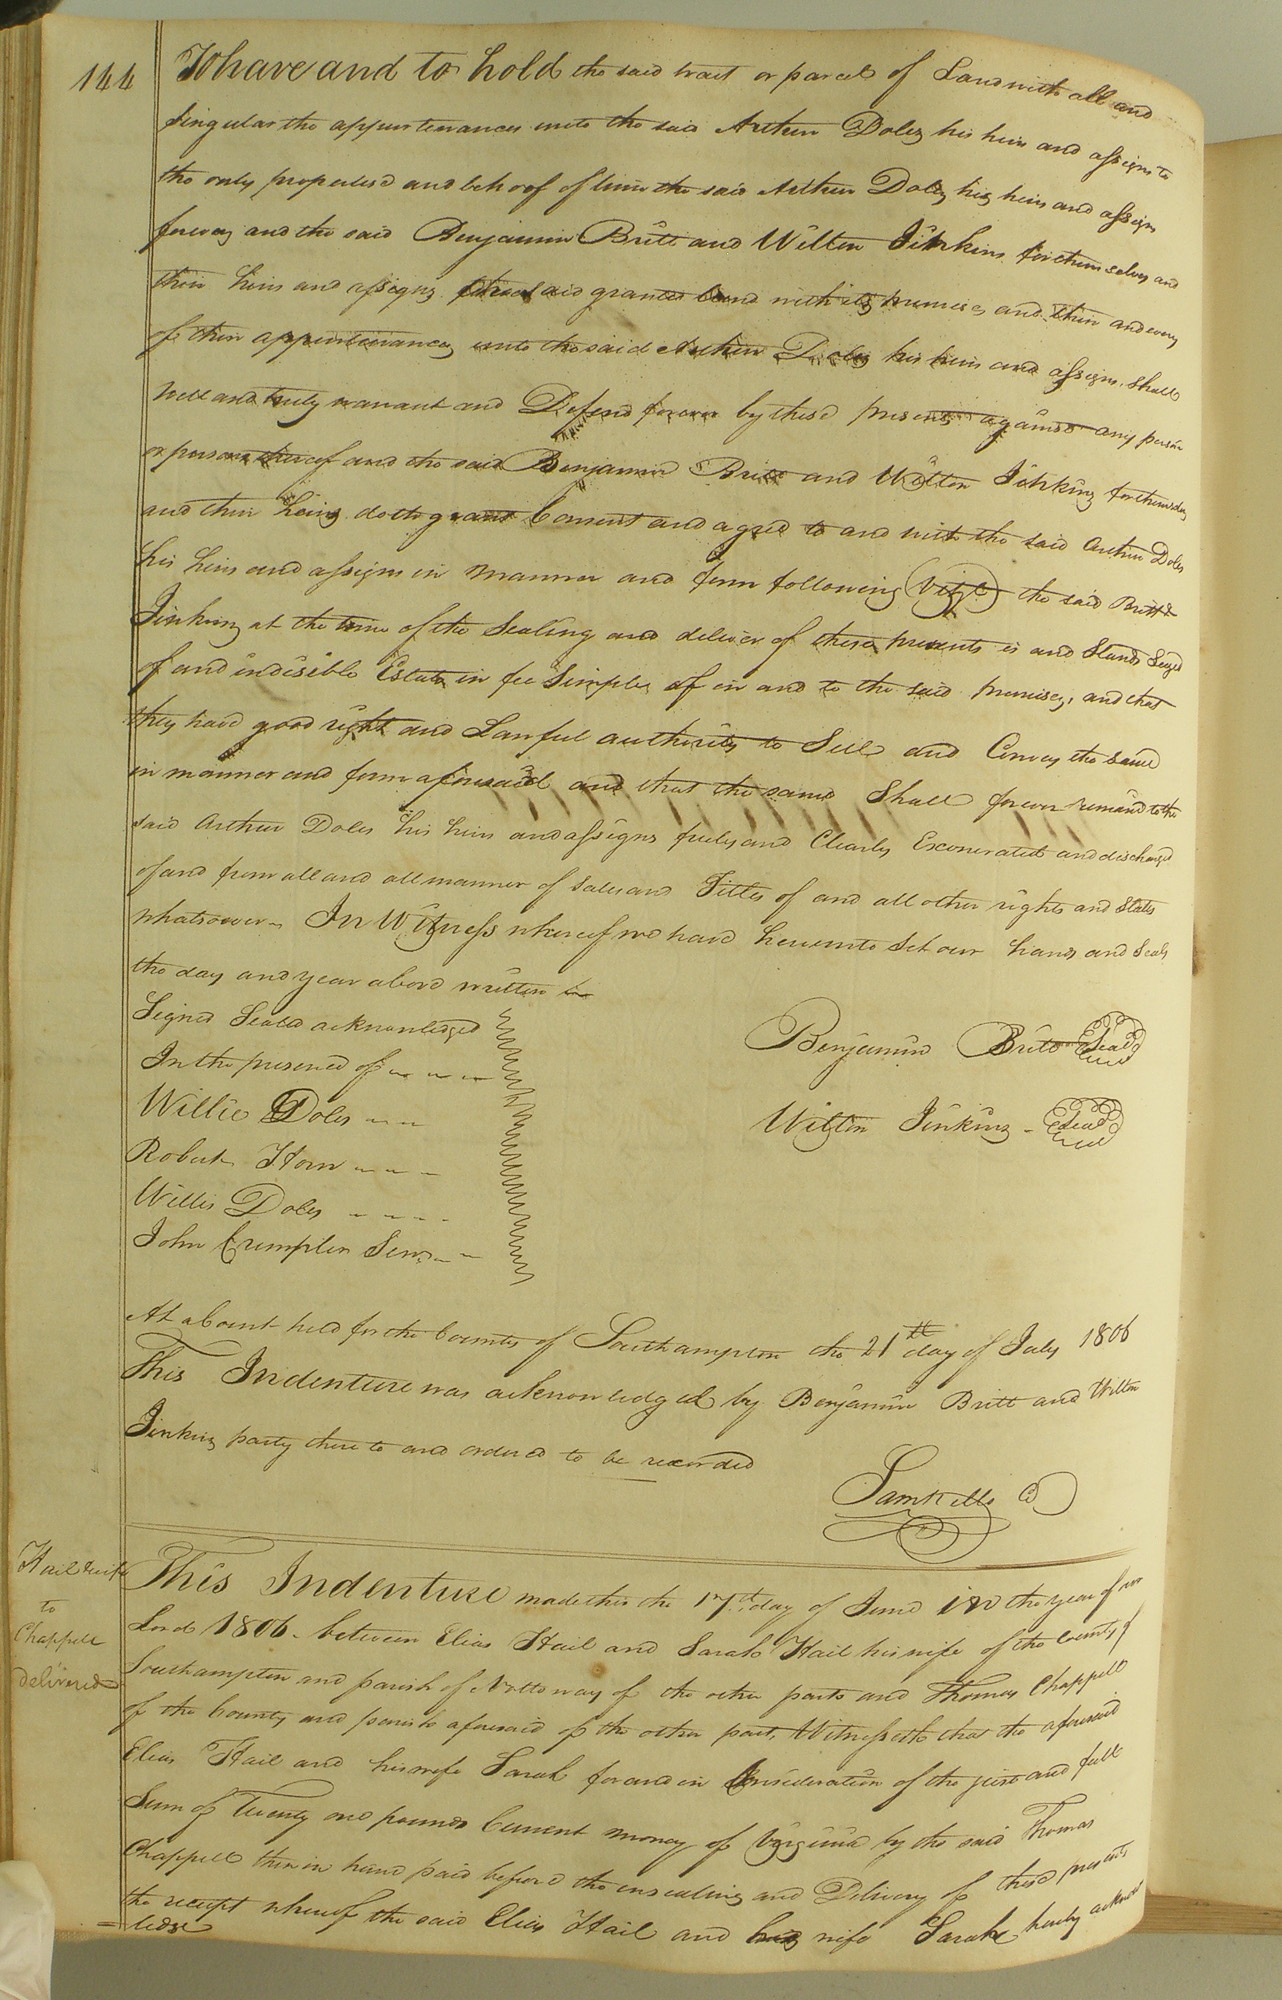 144
To have and to hold the said tract or parcel of Land with all and
Singular the appurtenances unto the said Arthur Doles his heirs and assigns to
the only proper use and behoof of him the said Arthur Doles his heirs and assigns
forever and the said Benjamin Britt and Wilton Jinkins for themselves and
their heirs and assigns the said granted land with its premises and their and every
of their appurtenances unto the said Arthur Doles his heirs and assigns shall
well and truly warrant and Defend forever by these presents against any person
or persons thereof and the said Benjamin Britt and Wilton Jinkins for themselves
and their heirs doth grant Consent and agree to and with the said Arthur Doles
his heirs and assigns in manner and form following (Vizt.) the said Britt &
Jinkins at the time of the Sealing and deliver of these presents is and Stands Seized
of and indisible Estate in fee Simple of in and to the said premises, and that
they have good right and Lawful authority to Sell and Convey the same
in manner and form aforesaid and that the same Shall forever remain to the
said Arthur Doles his heirs and assigns freely and Clearly Exonerated and discharged
of and from all and all manner of sales and Titles of and all other rights and states
whatsoever. In Witness whereof we have hereunto Set our hands and Seals
the day and year above written
Signed Seald acknowledged
In the presence of
Willie Doles
Robert Horn
Willis Doles
John Crumpler Senr.
Benjamin Britt Seal
Wilton Jinkins Seal
At a Court held for the County of Southampton the 21st day of July 1806
This Indenture was acknowledged by Benjamin Britt and Wilton
Jinkins party thereto and ordered to be recorded
Saml Kello C
Hail & wife
to
Chappell
delivered
This Indenture made this the 17th day of June in the year of our
Lord 1806. between Elias Hail and Sarah Hail his wife of the County of
Southampton and parish of Nottoway of the other parts and Thomas Chappell
of the County and parish aforesaid of the other part, Witnesseth that the aforesaid
Elias Hail and his wife Sarah for and in Consideration of the just and full
Sum of Twenty one pounds Current money of Virginia by the said Thomas
Chappell them in hand paid before the ensealing and Delivery of these presents
the receipt whereof the said Elias Hail and his wife Sarah hereby acknow
=ledge